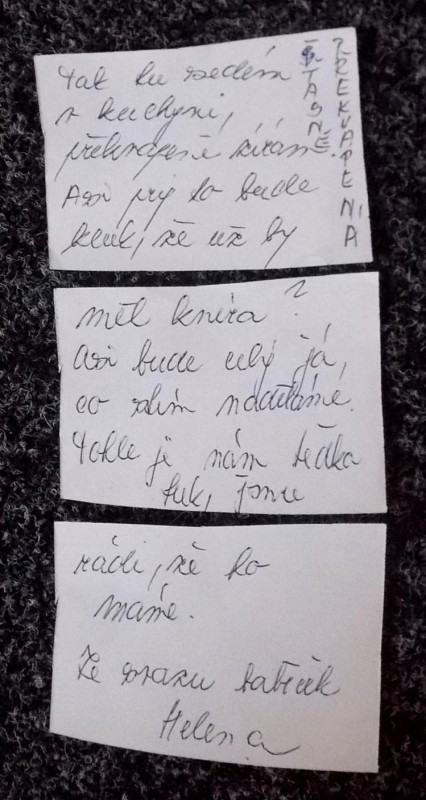 Tak tu sedím
v kuchyni,
překvapeně zírám.
Asi prý to bude
kluk, že už by
PŘEKVAPENÍ
měl kníra?
Asi bude celý já,
co s tím naděláme.
Tohle je nám teďka
fuk, jsme
rádi, že ho
máme.
Ze svazu babiček
Helena